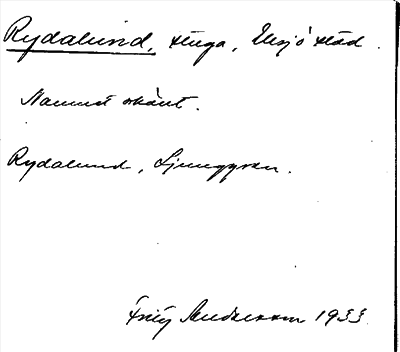 Rydalund, stuga, Eksjö stad.
Namnet okänt.
Rydalund, Ljunggren.
Fritz Andersson 1933